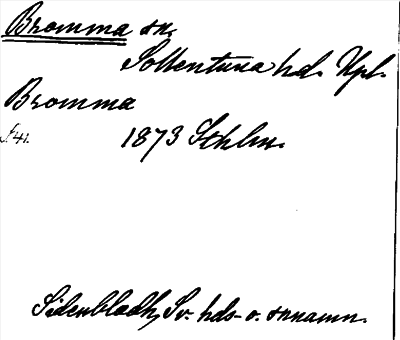 Bromma sn.
Sollentuna hd. Upl.
Bromma
1873 Sthlm.
Sidenbladh, Sv. hds- o. snnamn.